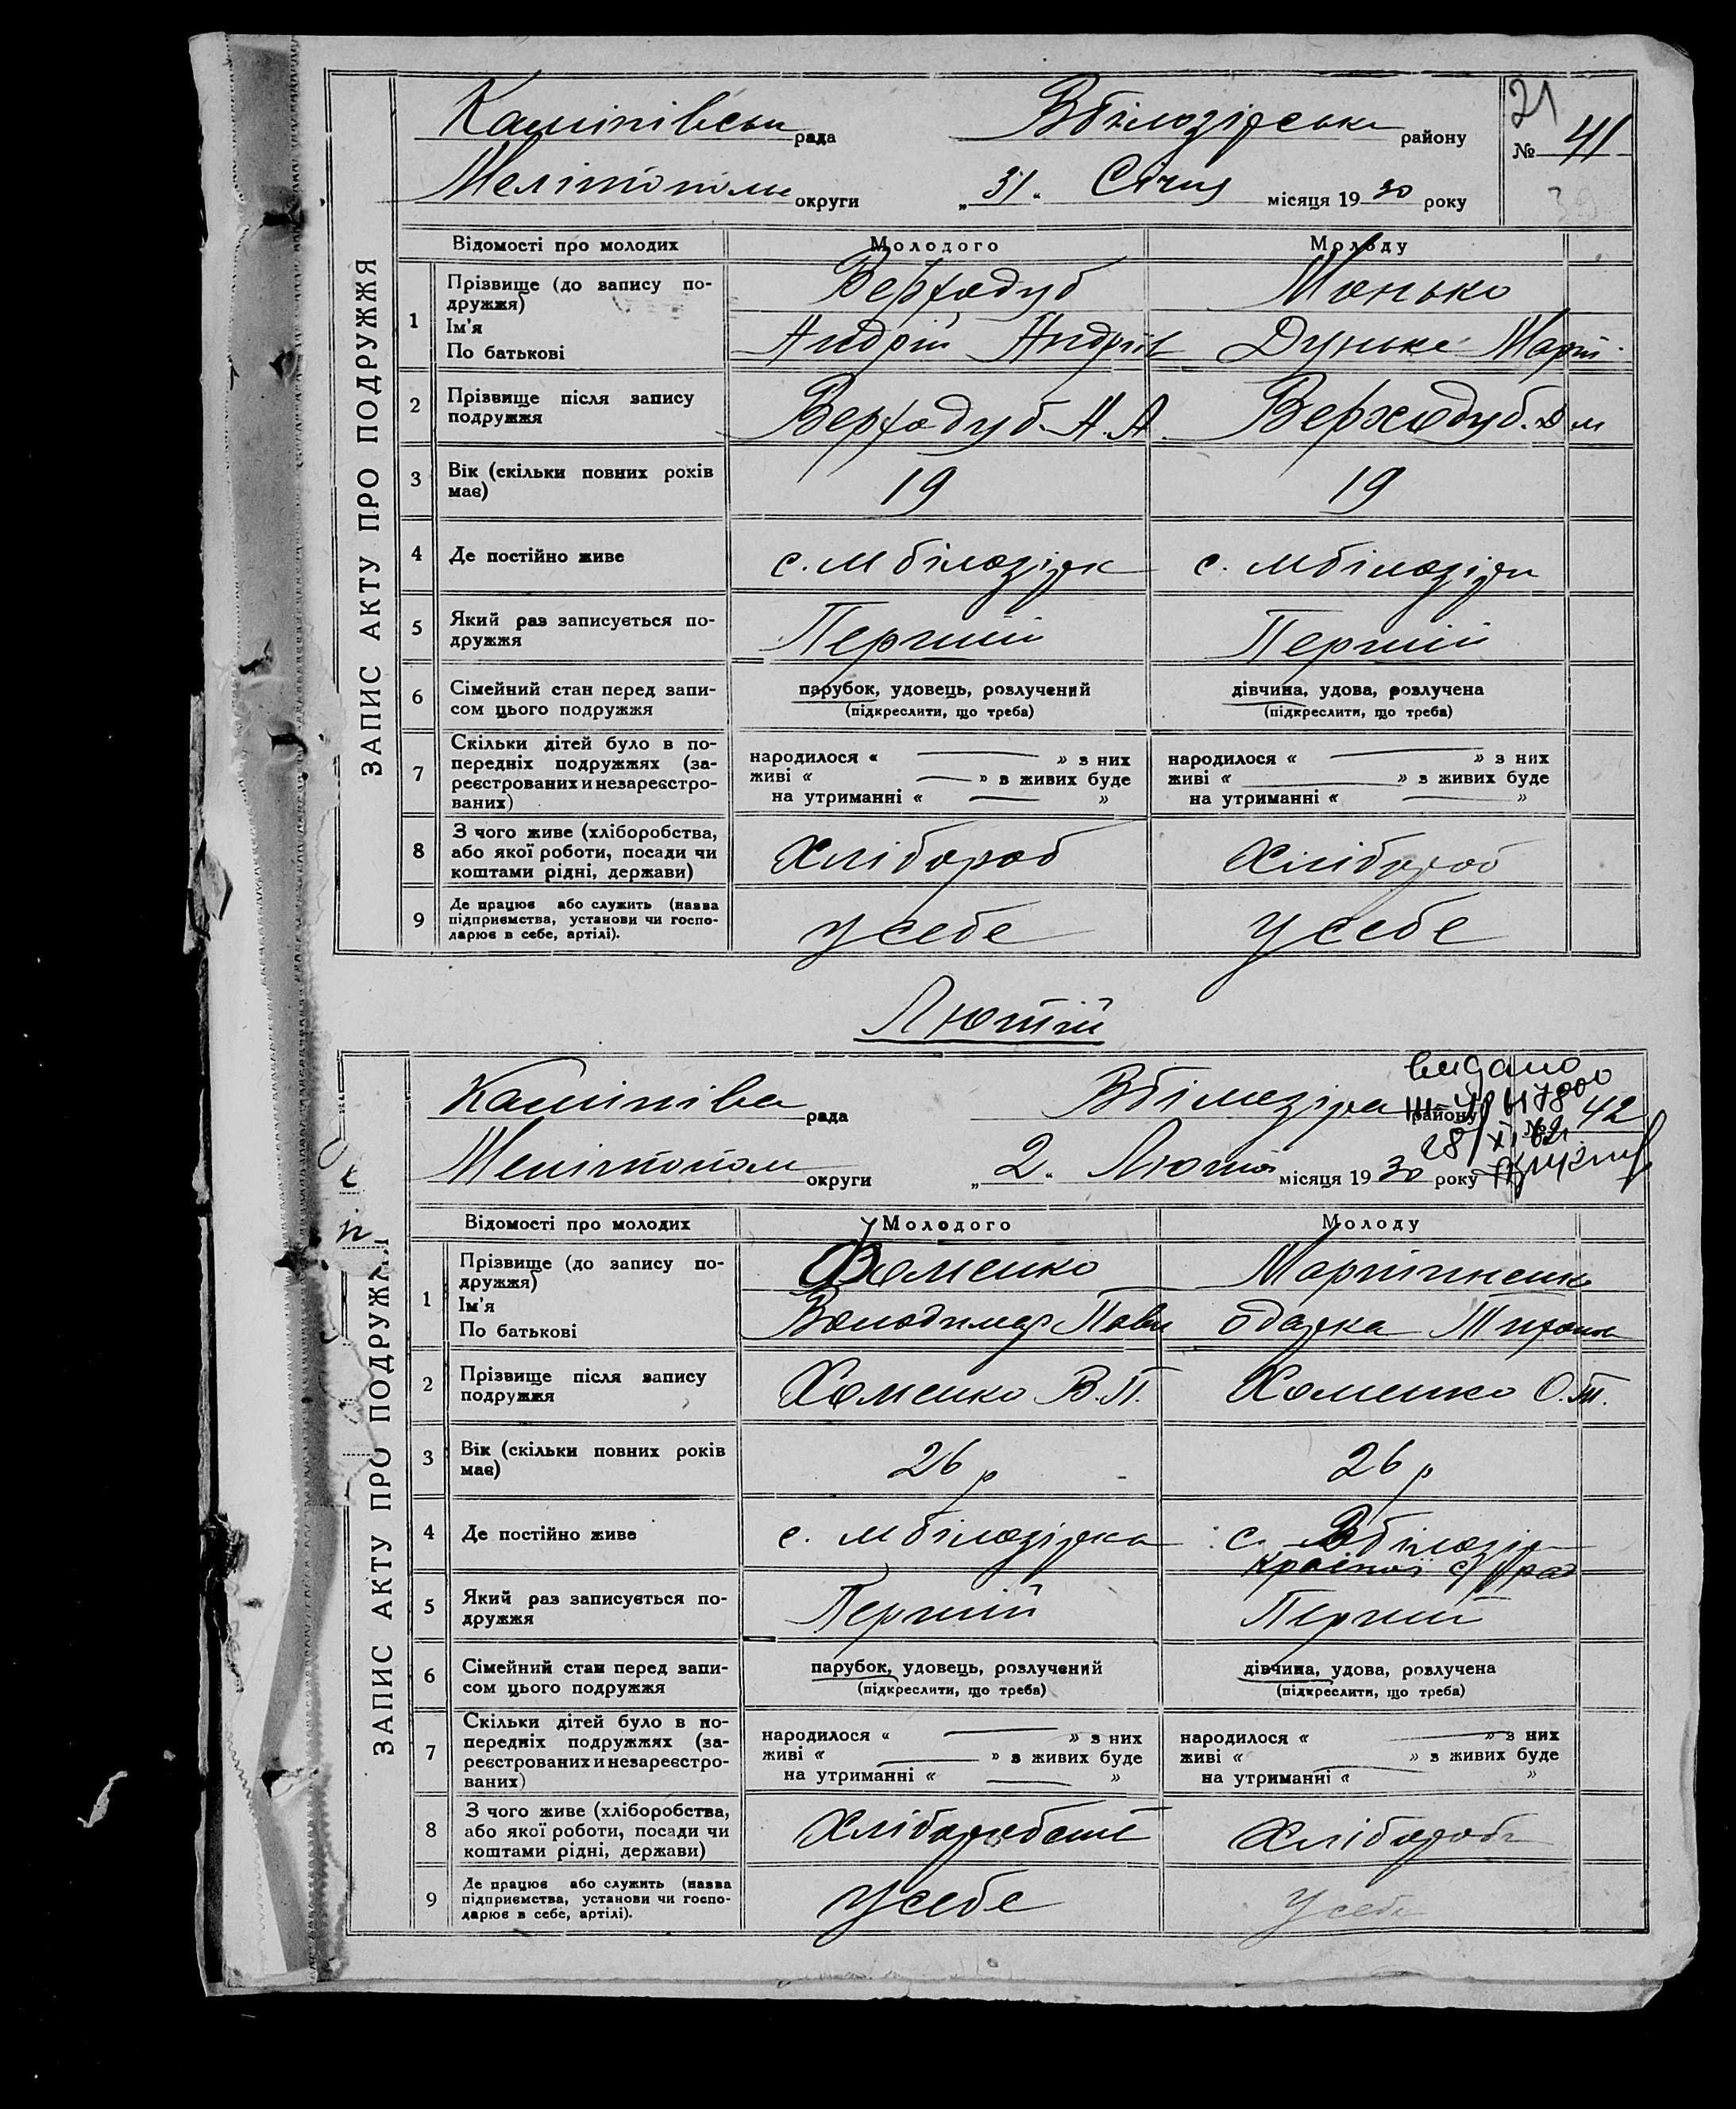 21
Камінівськ рада Вбілозірськ району № 41
39
Мелітополь округи „31" Січня місяця 1930 року
ЗАПИС АКТУ ПРО ПОДРУЖЖЯ
Відомості про молодих Молодого Молоду
1 Прізвище (до запису по-
дружжя)
Ім'я
По батькові
Верходуб Манько
Андрій Андрів Дунька Марті
2 Прізвище після запису
подружжя
Верходуб А. А. Верходуб. Д м
3 Вік (скільки повних років
має)
19 19
4 Де постійно живе с. м білозірк с. мбілозірк
5 Який раз записується по-
дружжя
Перший Перший
6 Сімейний стан перед запи-
сом цього подружжя
парубок, удовець, розлучений дівчина, удова, розлучена
(підкреслити, що треба) (підкреслити, що треба)
7 Скільки дітей було в по-
передніх подружжях (за-
реєстрованих и незареєстро-
ваних)
народилося « — » з них народилося « — » з них
живі « — » в живих буде живі « — » в живих буде
на утриманні « — » на утриманні « — »
8 З чого живе (хліборобства,
або якої роботи, посади чи
коштами рідні, держави)
Хлібороб Хлібороб
9 Де працює або служить (назва
підприємства, установи чи госпо-
дарює в себе, артілі).
усебе усебе
Лютій
видано
Камінівсь рада Вбілозірка району № 42
28/XI 62
Мелітополь округи „2" Лютого місяця 1930 року
ЗАПИС АКТУ ПРО ПОДРУЖЖЯ
Відомості про молодих Молодого Молоду
1 Прізвище (до запису по-
дружжя)
Ім'я
По батькові
Хоменко Мартиненко
Володимер Павл Одарка Тихонов
2 Прізвище після запису
подружжя
Хоменко В. П. Хоменко О. Т.
3 Вік (скільки повних років
має)
26 р 26 р
4 Де постійно живе с. м білозірка с. Вбілозір
с/рад
5 Який раз записується по-
дружжя
Перший Перший
6 Сімейний стан перед запи-
сом цього подружжя
парубок, удовець, розлучений дівчина, удова, розлучена
(підкреслити, що треба) (підкреслити, що треба)
7 Скільки дітей було в по-
передніх подружжях (за-
реєстрованих и незареєстро-
ваних)
народилося « — » з них народилося « — » з них
живі « — » в живих буде живі « — » в живих буде
на утриманні « — » на утриманні « »
8 З чого живе (хліборобства,
або якої роботи, посади чи
коштами рідні, держави)
Хліборобст Хлібороб
9 Де працює або служить (назва
підприємства, установи чи госпо-
дарює в себе, артілі).
усебе усебе